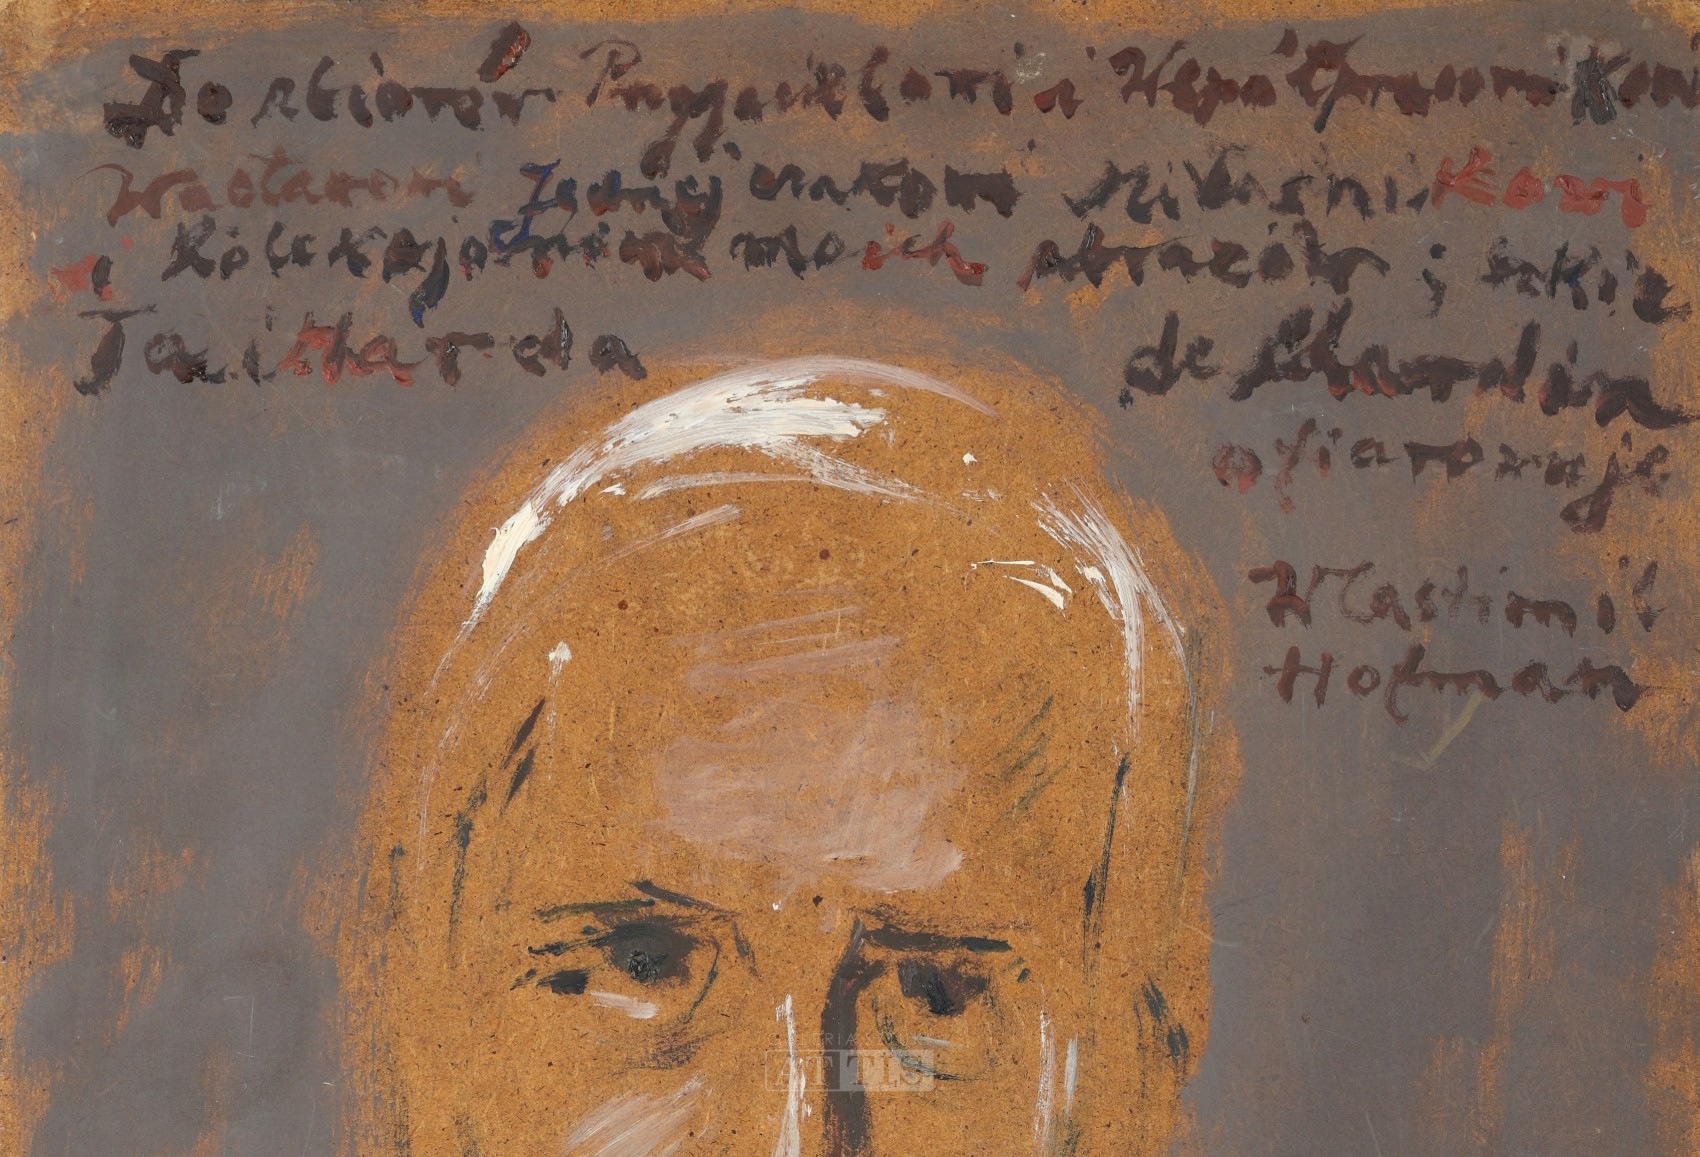 Do zbiorów Przyjacielowi i Współpracowni Kowi
Wacławowi Jędrzejczakom Miłośnikom
i Kolekcjonerom moich obrazów i szkic
Ta i Harda de Chardin
ofiarowuje
Wlastimil
Hofman
ATTIS